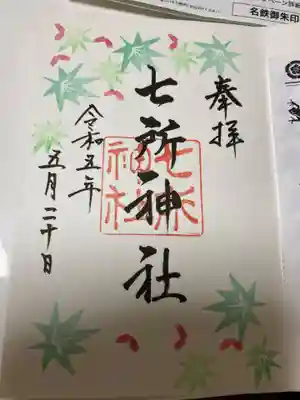 奉拝
七所神社
七所神社
令和五年
五月二十日
名鉄御朱印